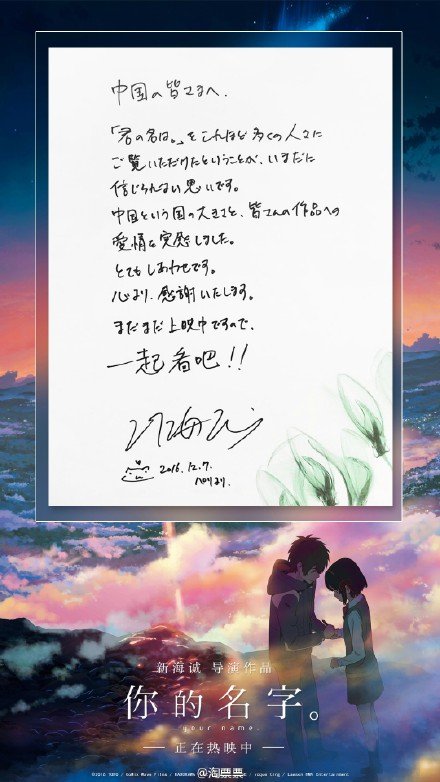 中国の皆さまへ.
「君の名は。」をこれほど多くの人々に
ご覧いただけたということが、いまだに
信じられない思いです。
中国という国の大きさと、皆さんの作品への
愛情を実感しました。
とてもしあわせです。
心より、感謝いたします。
まだまだ上映中ですので、
一起看吧!!
2016.12.7.
パリより.
新海诚 导演作品
你的名字。
your name.
正在热映中
@淘票票